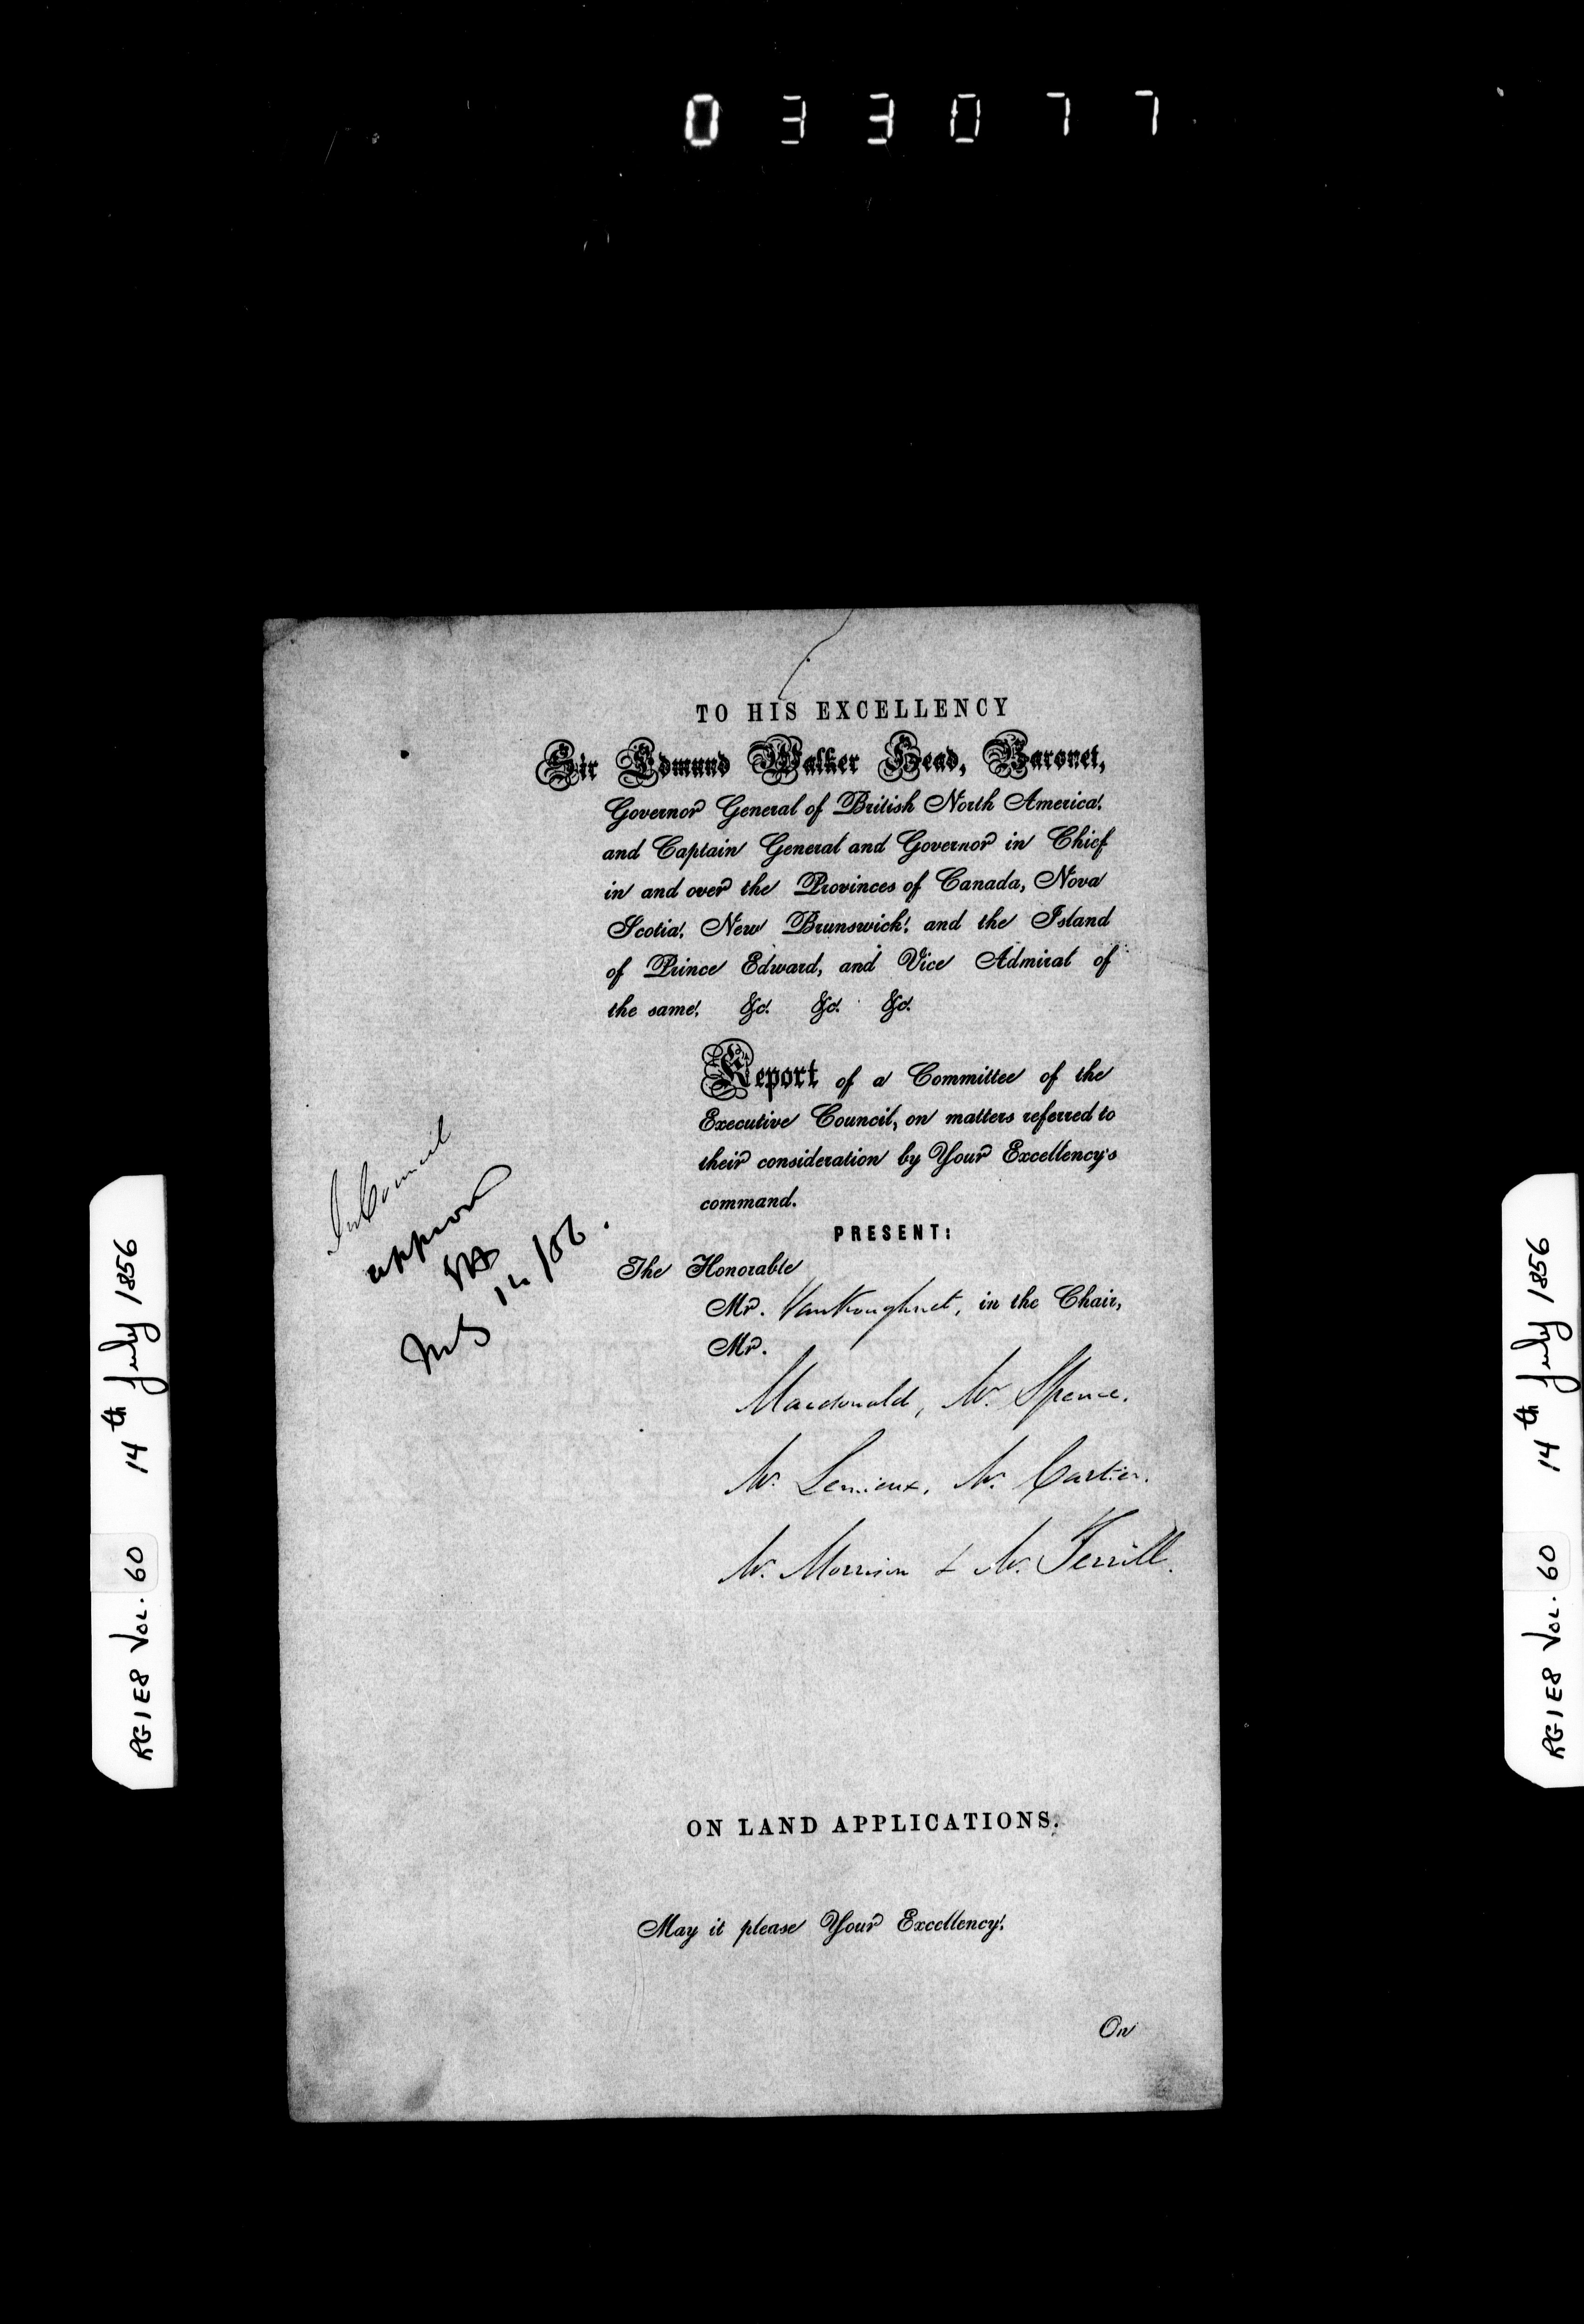 033077
TO HIS EXCELLENCY
Sir Edmund Walker Head, Baronet,
Governor General of British North America,
and Captain General and Governor in Chief
in and over the Provinces of Canada, Nova
Scotia, New Brunswick, and the Island
of Prince Edward, and Vice Admiral of
the same, &c. &c. &c.
Report of a Committee of the
Executive Council, on matters referred to
their consideration by Your Excellency's
command.
PRESENT:
The Honorable
Mr. VanKoughnet, in the Chair,
Mr.
Macdonald, Mr. Spence.
Mr. Lemieux, Mr. Cartier.
Mr. Morrison & Mr. Terrill.
In Council
ON LAND APPLICATIONS.
May it please Your Excellency,
On
RG1E8 Vol. 60 14th July 1856
RG1E8 Vol. 60 14th July 1856